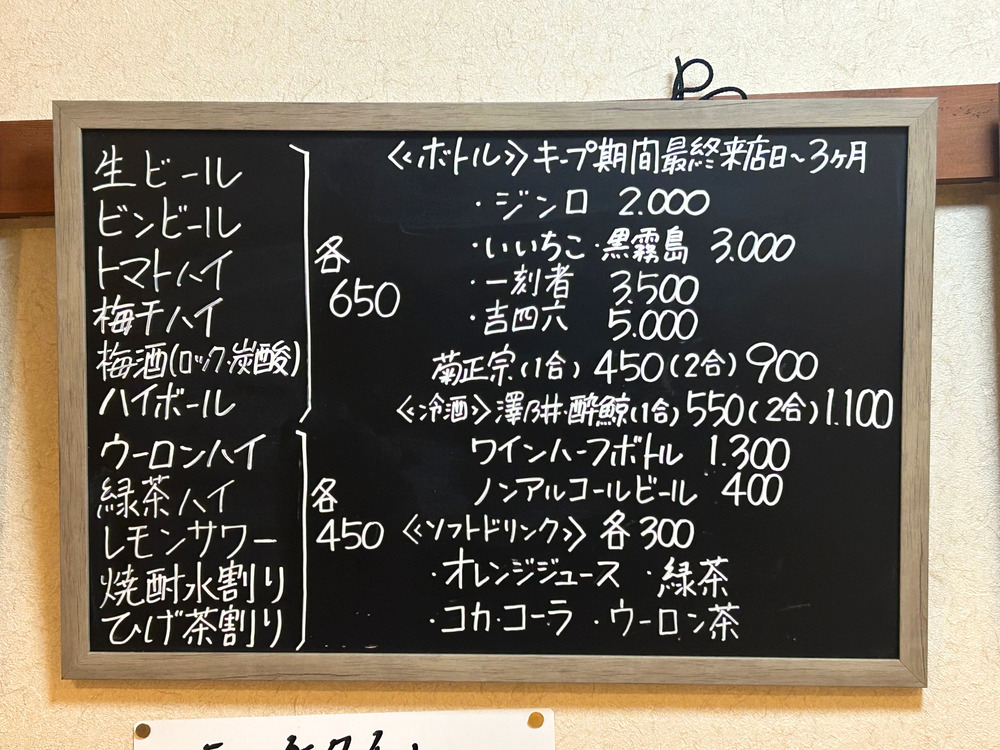 生ビール
ビンビール
トマトハイ
梅干ハイ
梅酒(ロック・炭酸)
ハイボール
各
650
ウーロンハイ
緑茶ハイ
レモンサワー
焼酎水割り
ひげ茶割り
各
450
≪ボトル≫キープ期間最終来店日~3ヶ月
・ジンロ 2.000
・いいちこ・黒霧島 3.000
・一刻者 3.500
・吉四六 5.000
菊正宗(1合)450(2合)900
≪冷酒≫澤乃井・酔鯨(1合)550(2合)1.100
ワインハーフボトル 1.300
ノンアルコールビール 400
≪ソフトドリンク≫各300
・オレンジジュース ・緑茶
・コカ・コーラ ・ウーロン茶